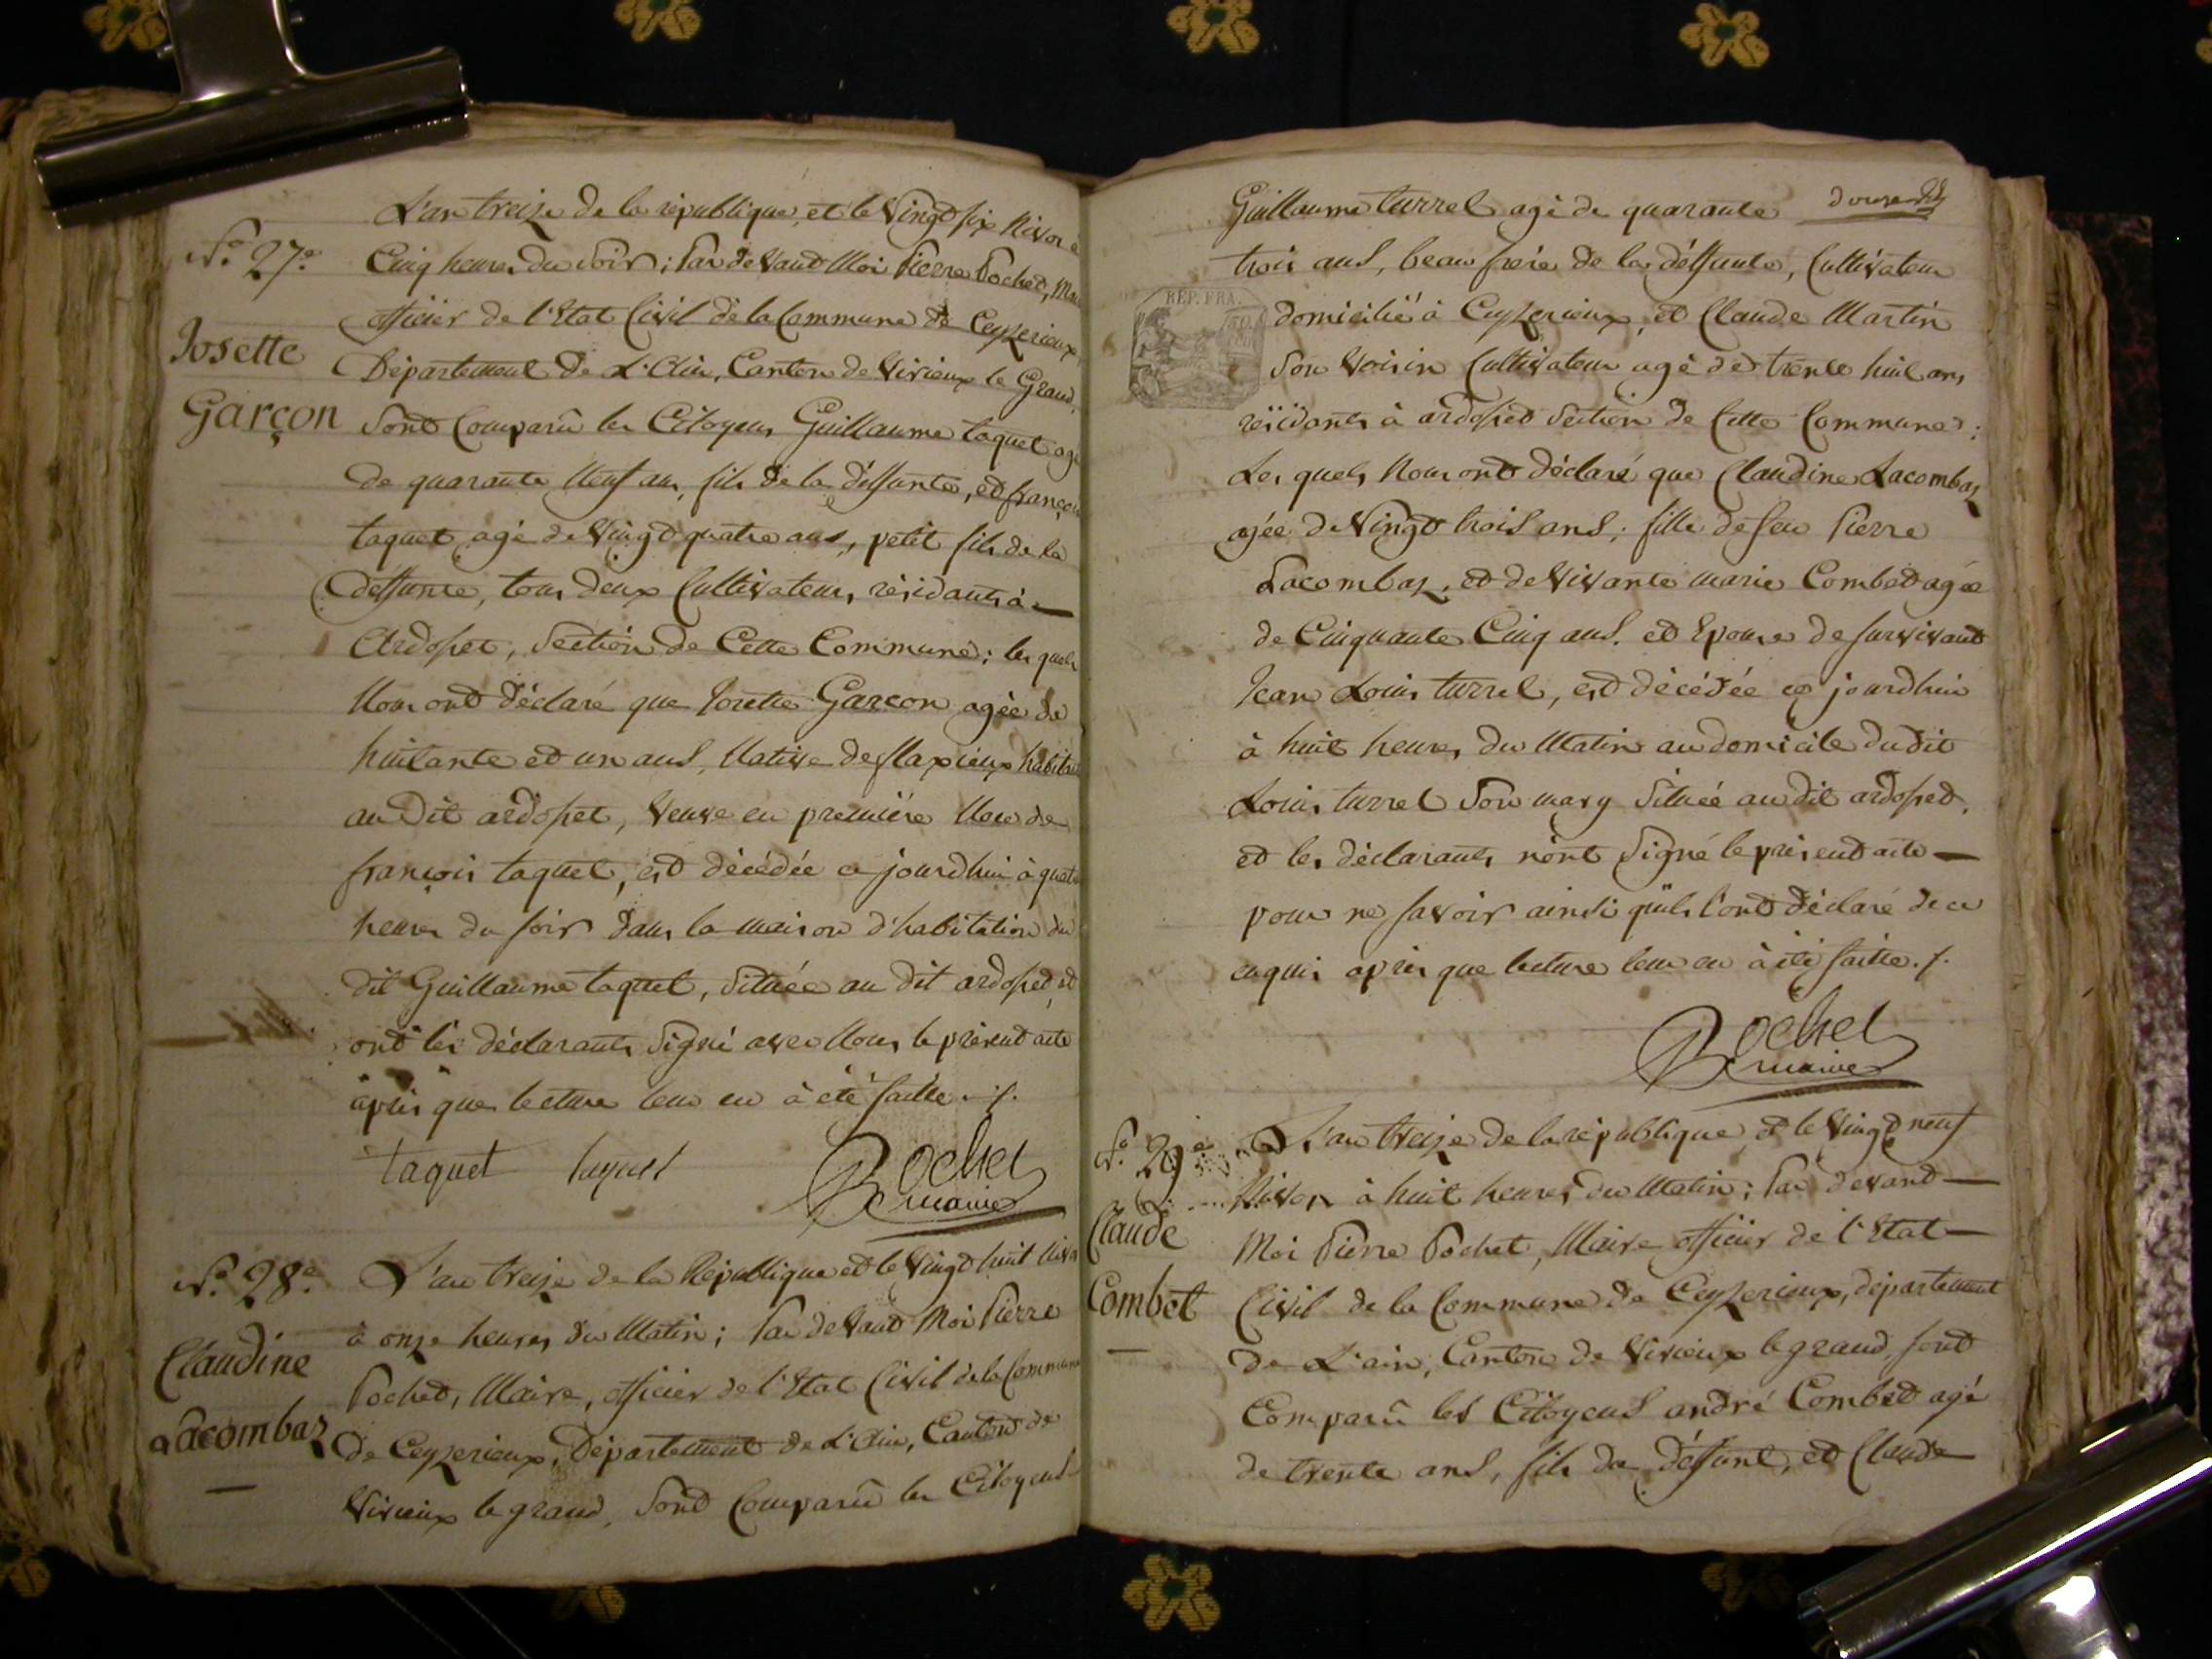 L'an treize de la république, et le vingt six Nivose
N.º 27.e
Cinq heures du soir; Par devant Moi Pierre Pochet, Maire
officier de l'Etat Civil de la Commune de Ceyzerieux,
Josette
Département de L'Ain, Canton de Virieux le Grand,
Garçon
Sont Comparû les Citoyens Guillaume taquet agé
de quarante Neuf ans, fils de la déffunte, et françois
taquet agé de Vingt quatre ans, petit fils de la
déffunte, tous deux Cultivateurs, résidants à
Ardosset, Section de Cette Commune; les quels
Nous ont déclaré que Josette Garçon agée de
huitante et un ans, Native de flaxieux habitante
au Dit ardosset, Veuve en première Noce de
françois taquet, est décédée ce jourdhui à quatre
heures du soir dans la maison d'habitation du
dit Guillaume taquet, située au dit ardosset, et
ont les déclarants signé avec Nous le présent acte
après que lecture leur en à été faitte ./.
taquet taquet Pochet
maire
N.º 28.e
L'an treize de la République et le Vingt huit Nivose
à onze heures du Matin; Par devant Moi Pierre
Claudine
Pochet, Maire, officier de l'Etat Civil de la Commune
Lacombaz
de Ceyzerieux, Département de L'Ain, Canton de
Virieux le grand, Sont Comparû les Citoyens
Guillaume turrel agé de quarante
douze
trois ans, beau frère de la déffunte, Cultivateur
REP. FRA.
domicilié à Ceyzerieux, et Claude Martin
Son Voisin Cultivateur agé de trente huit ans
résidants à ardosset Section de Cette Commune;
Les quels Nous ont déclaré que Claudine Lacombaz
agée de Vingt trois ans, fille de feu Pierre
Lacombaz, et de Vivante marie Combet agée
de Cinquante Cinq ans. et Epouse de survivant
Jean Louis turrel, est décédée ce jourdhui
à huit heures du Matin au domicile du dit
Louis turrel Son mary située au dit ardosset,
et les déclarants n'ont signé le présent acte
pour ne savoir ainsi qu'ils l'ont déclaré de ce
enquis après que lecture leur en à été faitte ./.
Pochet
maire
N.º 29.e
L'an treize de la république et le Vingt neuf
Nivose à huit heures du Matin; Par devant
Claude
Moi Pierre Pochet, Maire officier de l'Etat
Combet
Civil de la Commune de Ceyzerieux, département
de L'ain, Canton de Virieux le grand, sont
Comparû les Citoyens andré Combet agé
de trente ans, fils du déffunt, et Claude